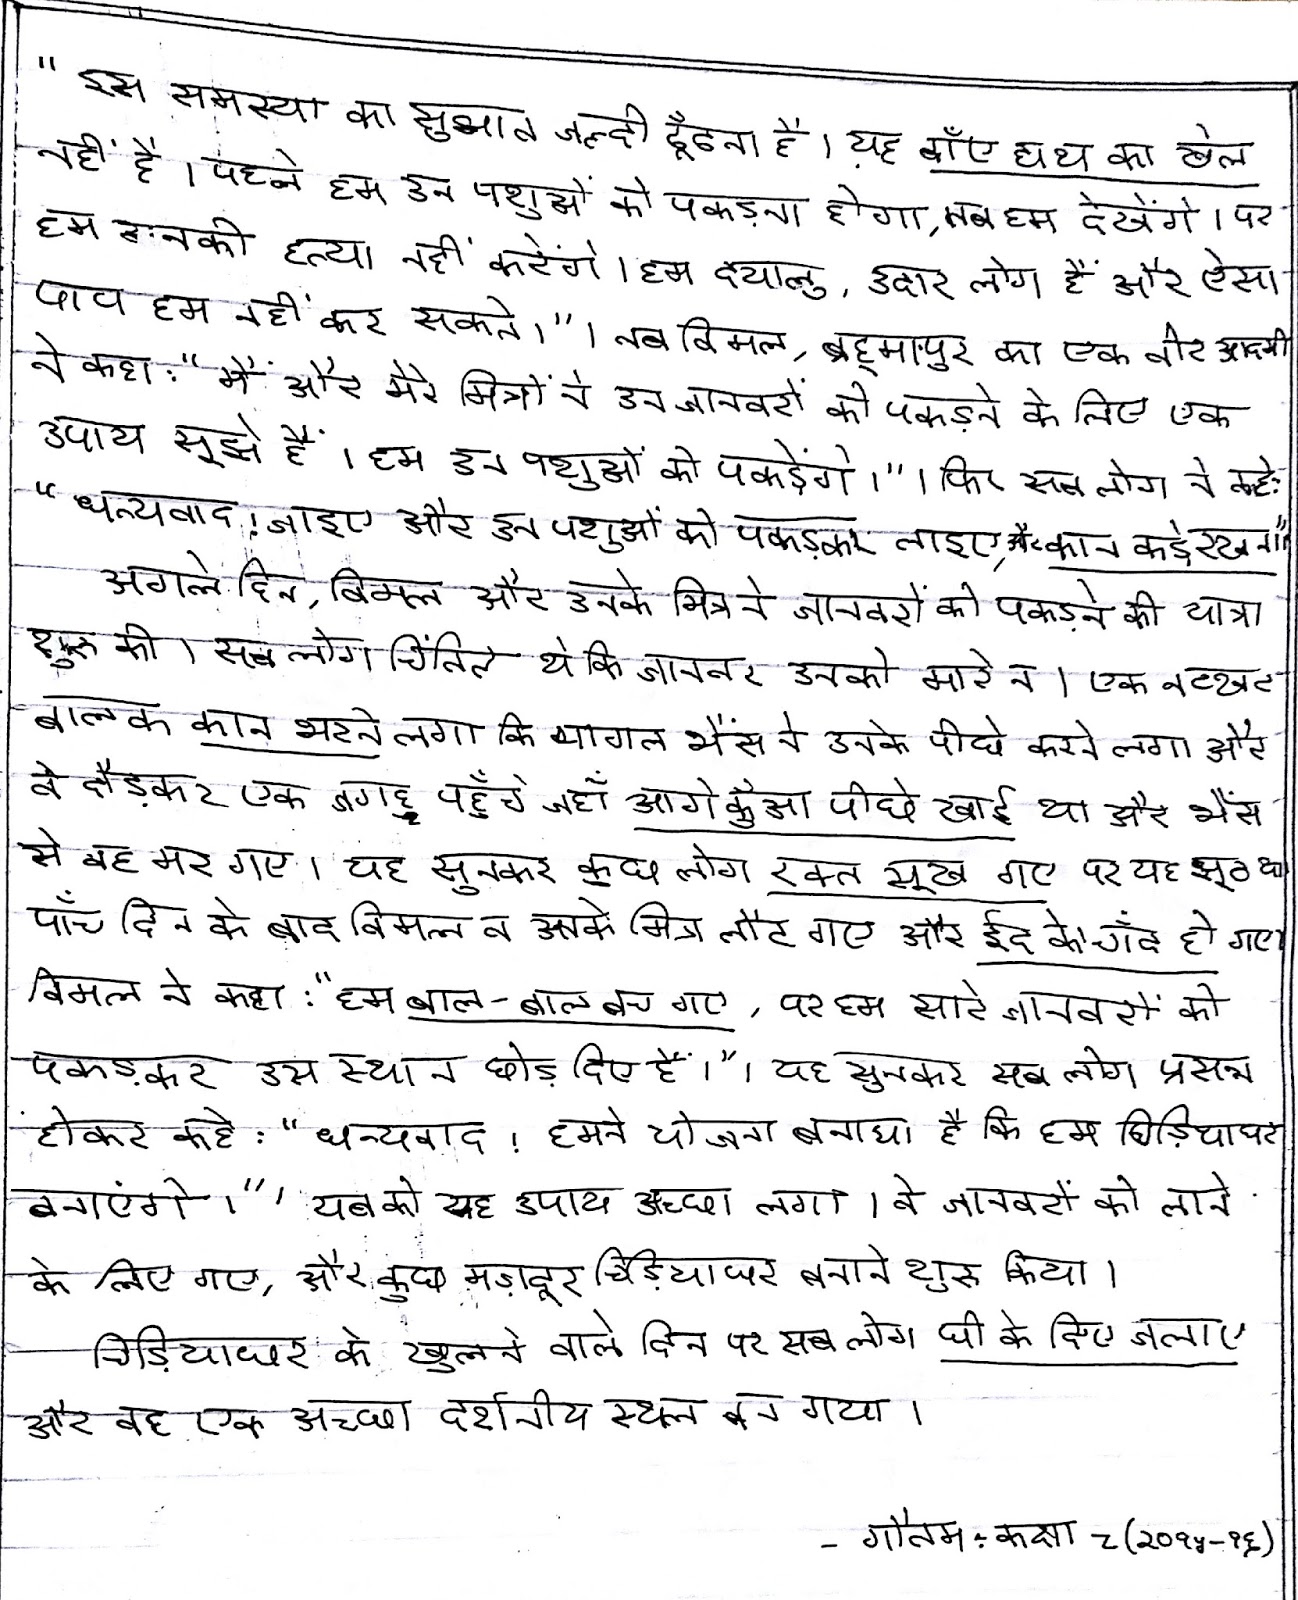 " इस समस्या का सुझाव जल्दी ढूँढना है । यह बाँए हाथ का खेल
नहीं है । पहले हम उन पशुओं को पकड़ना होगा, तब हम देखेंगे । पर
हम उनकी हत्या नहीं करेंगे । हम दयालु, उदार लोग हैं और ऐसा
पाप हम नहीं कर सकते ।" । तब विमल, ब्रह्मापुर का एक वीर आदमी
ने कहा : "मैं और मेरे मित्रों ने उन जानवरों को पकड़ने के लिए एक
उपाय सूझे हैं । हम उन पशुओं को पकड़ेंगे ।" । फिर सब लोग ने कहे:
"धन्यवाद ! जाइए और उन पशुओं को पकड़कर लाइए, और कान कड़े रखना"
अगले दिन, विमल और उनके मित्र ने जानवरों को पकड़ने की यात्रा
शुरू की । सब लोग चिंतित थे कि जानवर उनको मारे न । एक नटखट
बालक कान भरने लगा कि पागल भैंस ने उनके पीछे करने लगा और
वे दौड़कर एक जगह पहुँचे जहाँ आगे कुँआ पीछे खाई था और भैंस
से वह मर गए । यह सुनकर कुछ लोग रक्त सूख गए पर यह झूठ था
पाँच दिन के बाद विमल व उनके मित्र लौट गए और ईद के चाँद हो गए।
विमल ने कहा : "हम बाल-बाल बच गए, पर हम सारे जानवरों को
पकड़कर उस स्थान छोड़ दिए हैं ।" । यह सुनकर सब लोग प्रसन्न
होकर कहे : "धन्यवाद ! हमने योजना बनाया है कि हम चिड़ियाघर
बनाएंगे ।" । सबको यह उपाय अच्छा लगा । वे जानवरों को लाने
के लिए गए, और कुछ मज़दूर चिड़ियाघर बनाने शुरू किया ।
चिड़ियाघर के खुलने वाले दिन पर सब लोग घी के दिए जलाए
और वह एक अच्छा दर्शनीय स्थल बन गया ।
- गौतम ÷ कक्षा ८ (२०१५-१६)